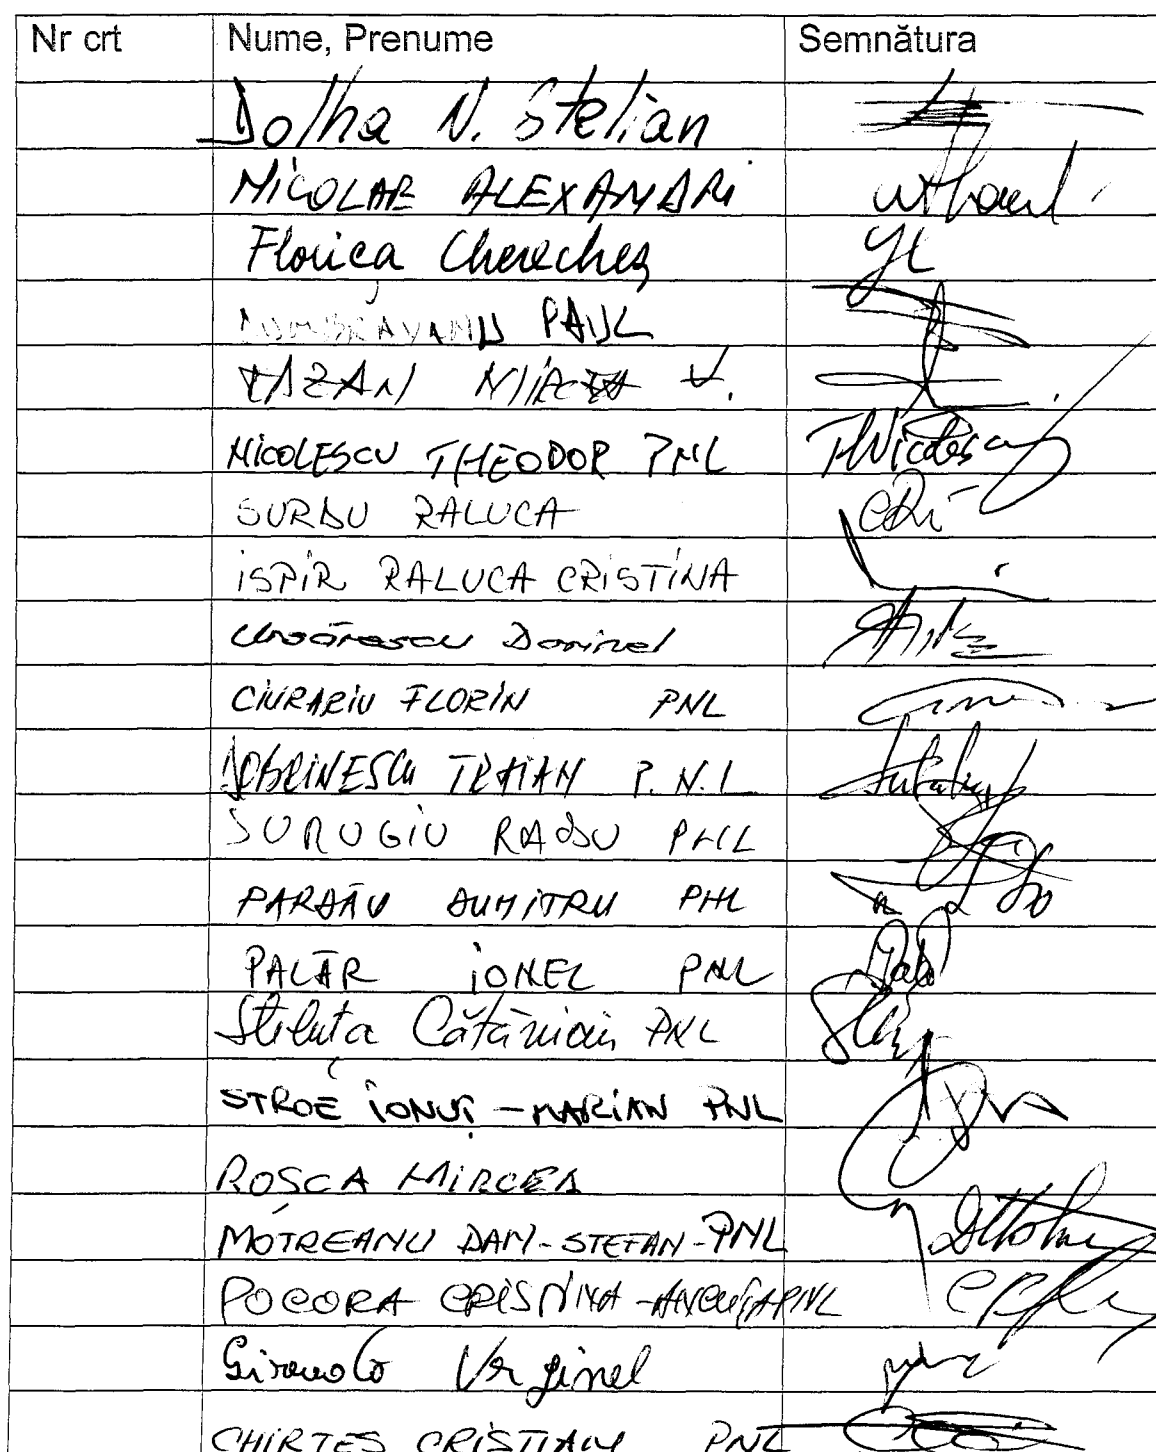 Nr crt Nume, Prenume Semnătura
Dolha N. Stelian
NICOLAE ALEXANDRI
Florica Cherecheș
DUMBRAVANU PAUL
CAZAN MIRCEA V.
NICOLESCU THEODOR PNL THNicolescu
SURDU RALUCA
ISPIR RALUCA CRISTINA
Ursărescu Dorinel
CIURARIU FLORIN PNL
DOBRINESCU TRAIAN P.N.L
SURUGIU RADU PNL
PARDĂU DUMITRU PNL
PALĂR IONEL PNL
Steluța Cătăniciu PNL
STROE IONUȚ-MARIAN PNL
ROȘCA MIRCEA
MOTREANU DAN-ȘTEFAN-PNL
POCORA CRISTINA-ANCUȚA PNL
Virginel
CHIRTEȘ CRISTIAN PNL